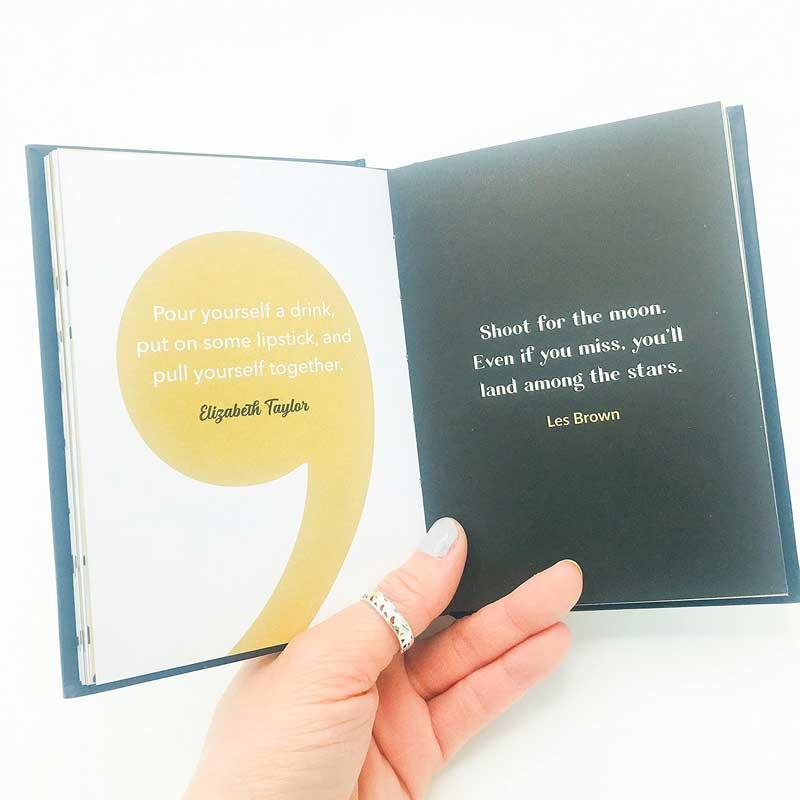 Pour yourself a drink,
put on some lipstick, and
pull yourself together.
Elizabeth Taylor
Shoot for the moon.
Even if you miss, you'll
land among the stars.
Les Brown